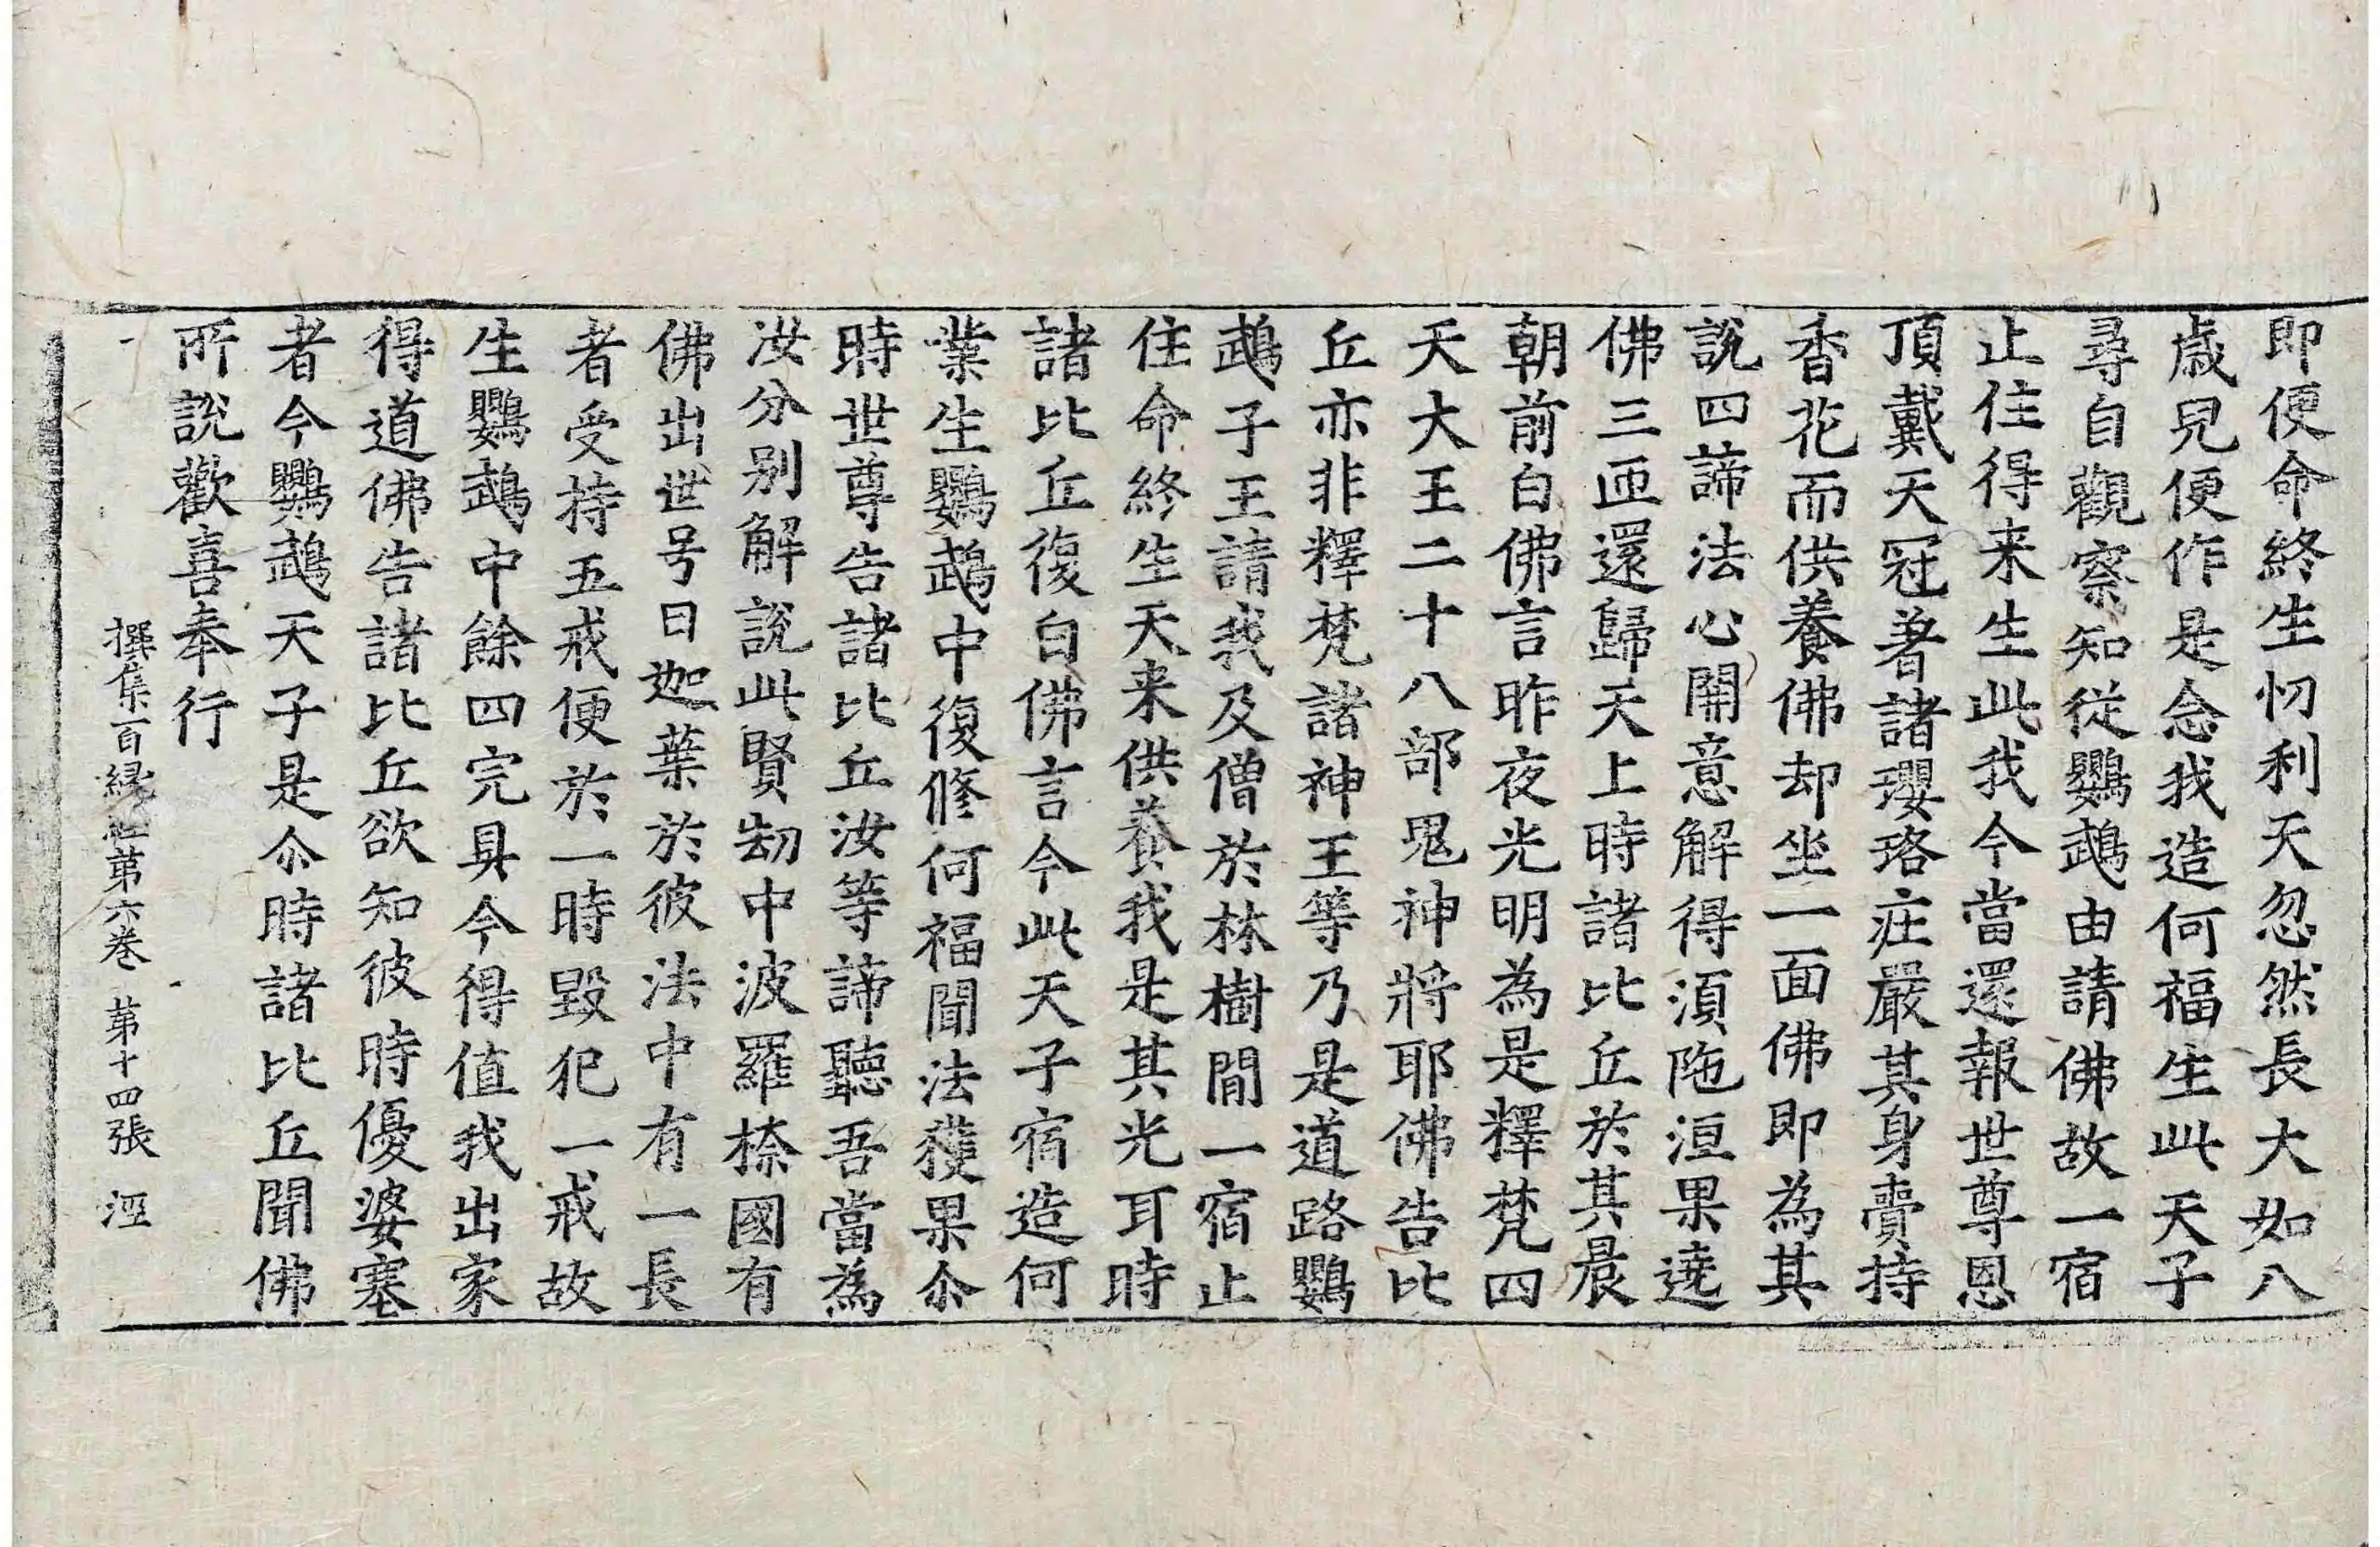 即便命終生忉利天忽然長大如八
歲兒便作是念我造何福生此天子
尋自觀察知從鸚鵡由請佛故一宿
止住得来生此我今當還報世尊恩
頂戴天冠著諸瓔珞庄嚴其身賷持
香花而供養佛却坐一面佛即為其
說四諦法心開意解得湏陁洹果遶
佛三匝還歸天上時諸比丘於其晨
朝前白佛言昨夜光明為是釋梵四
天大王二十八部鬼神將耶佛告比
丘亦非釋梵諸神王等乃是道路鸚
鵡子王請我及僧於林樹間一宿止
住命終生天来供養我是其光耳時
諸比丘復白佛言今此天子宿造何
業生鸚鵡中復修何福聞法獲果尒
時世尊告諸比丘汝等諦聽吾當為
汝分别解說此賢劫中波羅㮈國有
佛出世号曰迦葉於彼法中有一長
者受持五戒便於一時毀犯一戒故
生鸚鵡中餘四完具今得值我出家
得道佛告諸比丘欲知彼時優婆塞
者今鸚鵡天子是尒時諸比丘聞佛
所說歡喜奉行
撰集百緣経第六卷 第十四張 涇